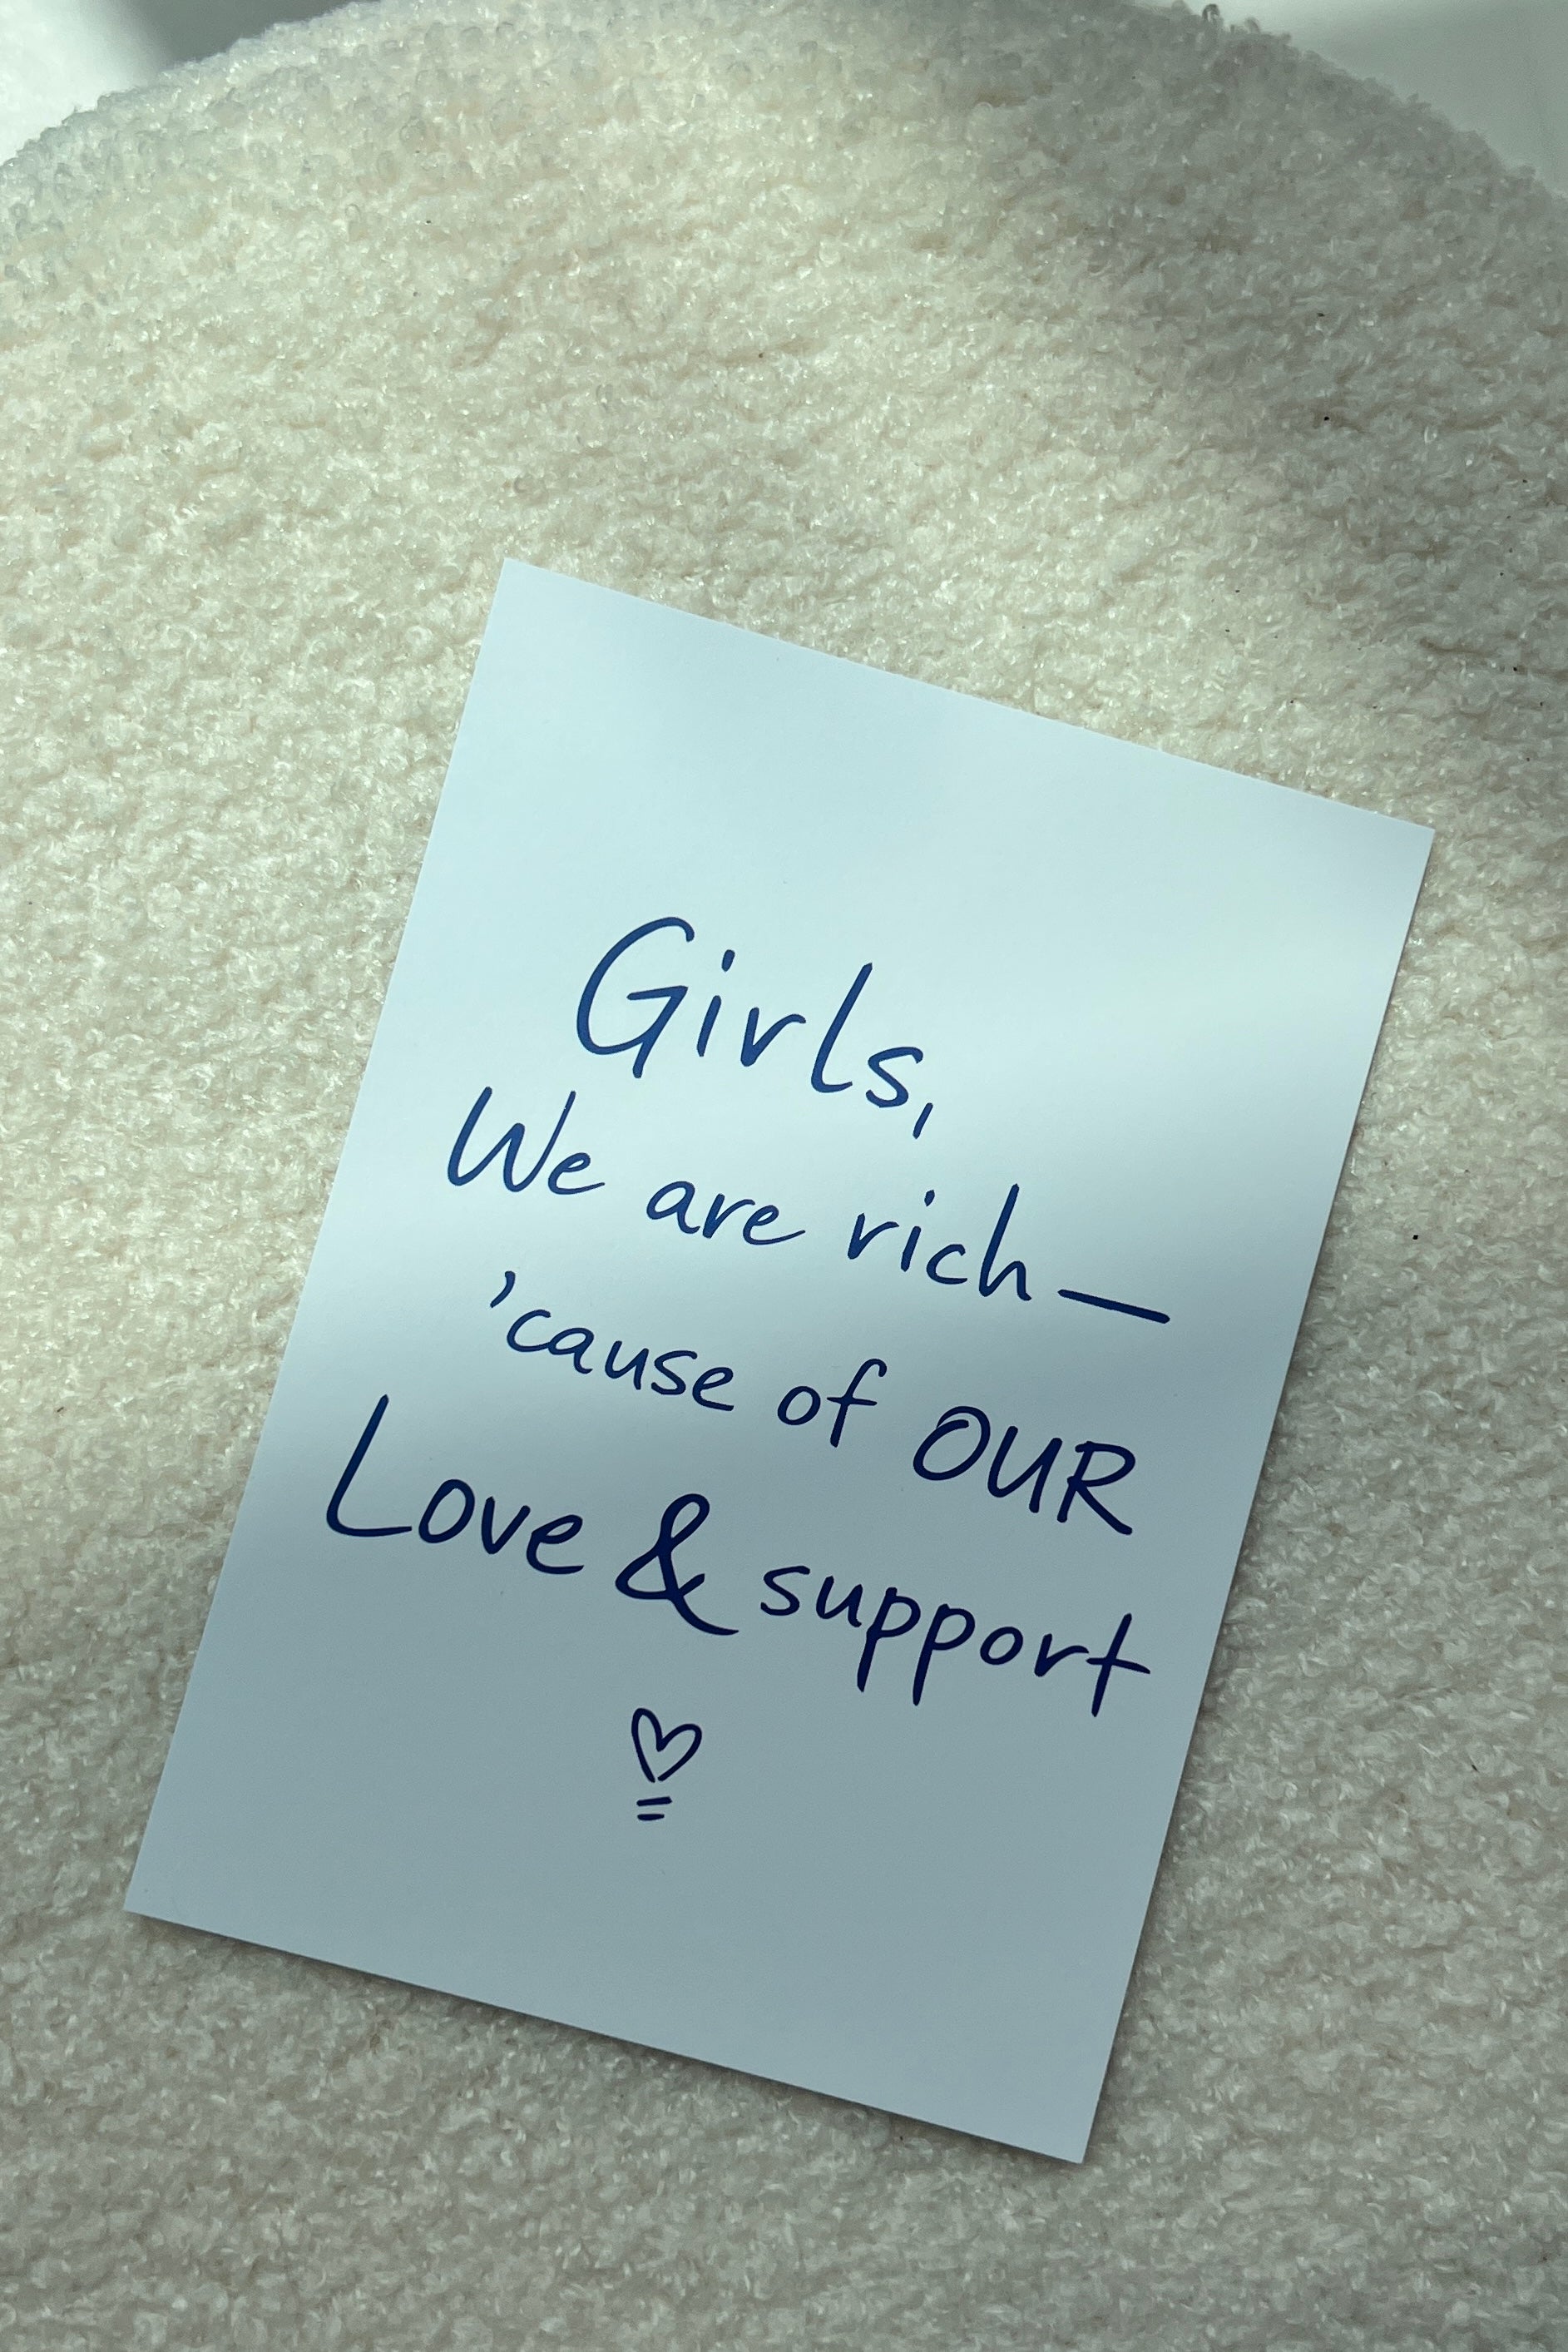 Girls,
We are rich—
'cause of OUR
Love & support